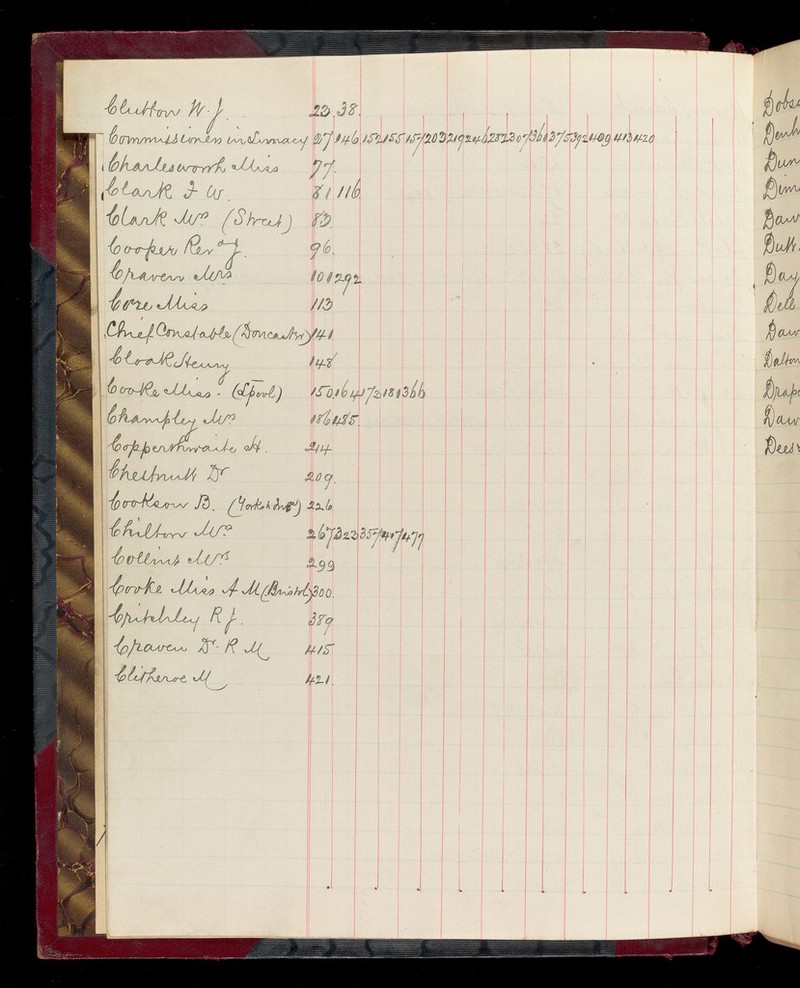 Clutton W. J. 23. 38.
Commissioners in Lunacy 27 146 152 155 157 203 219 246 282 307 361 375 392 409 413 420
Charlesworth Miss 77.
Clark F W. 81 116
Clark Mrs (Street) 83.
Cooper Revd J. 96.
Craven Mrs 101 292
Core Miss 113
Chief Constable (Doncaster) 141
Cloak Henry 148
Cooke Miss. (L'pool) 150 164 172 181 366
Champley Mrs 186 485
Copperthwaite H. 214
Chestnutt Dr 209.
Cookson B. 226
Chilton Mrs 267 323 357 407 477
Collins Mrs 299
Cooke Miss A M (Bristol) 300.
Critchley R J. 389
Craven Dr. R M 415
Clitheroe M 421.
Dobs
Dun
Daw
Dutt.
Day
Dell
Daw
Dalton
Drap
Daw